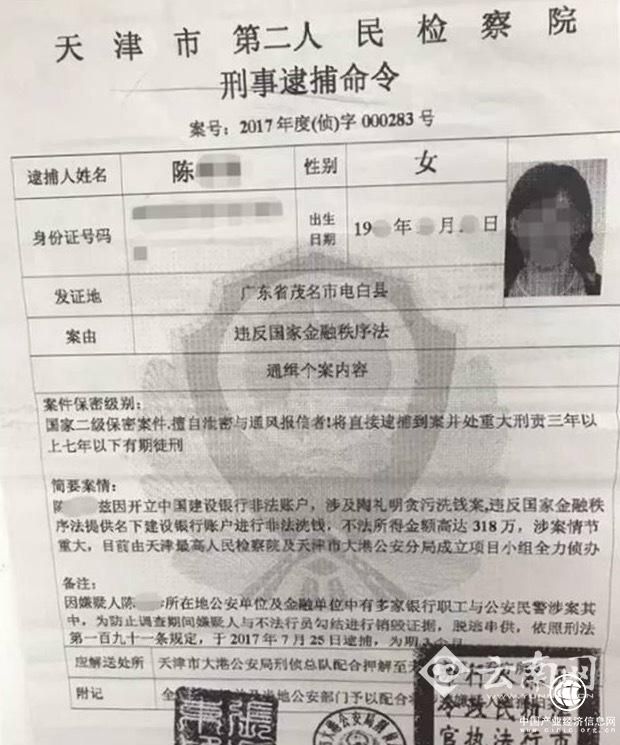 天津市第二人民检察院
刑事逮捕命令
案号：2017年度(侦)字000283号
逮捕人姓名 陈 性别 女
身份证号码 出生日期 19 年 月 日
发证地 广东省茂名市电白县
案由 违反国家金融秩序法
通缉个案内容
案件保密级别：
国家二级保密案件,擅自泄密与通风报信者!将直接逮捕到案并处重大刑责三年以
上七年以下有期徒刑
简要案情：
陈 兹因开立中国建设银行非法账户，涉及陶礼明贪污洗钱案,违反国家金融秩
序法提供名下建设银行账户进行非法洗钱，不法所得金额高达318万，涉案情节
重大，目前由天津最高人民检察院及天津市大港公安分局成立项目小组全力侦办
备注：
因嫌疑人陈 所在地公安单位及金融单位中有多家银行职工与公安民警涉案其
中，为防止调查期间嫌疑人与不法行员勾结进行销毁证据，脱逃串供，依照刑法
第一百九十一条规定，于2017年7月25日逮捕，为期 个月
应解送处所 天津市大港公安局刑侦总队配合押解至
附记 全 当地公安部门予以配合
云南网
中国产业经济信息网
www.cinic.org.cn